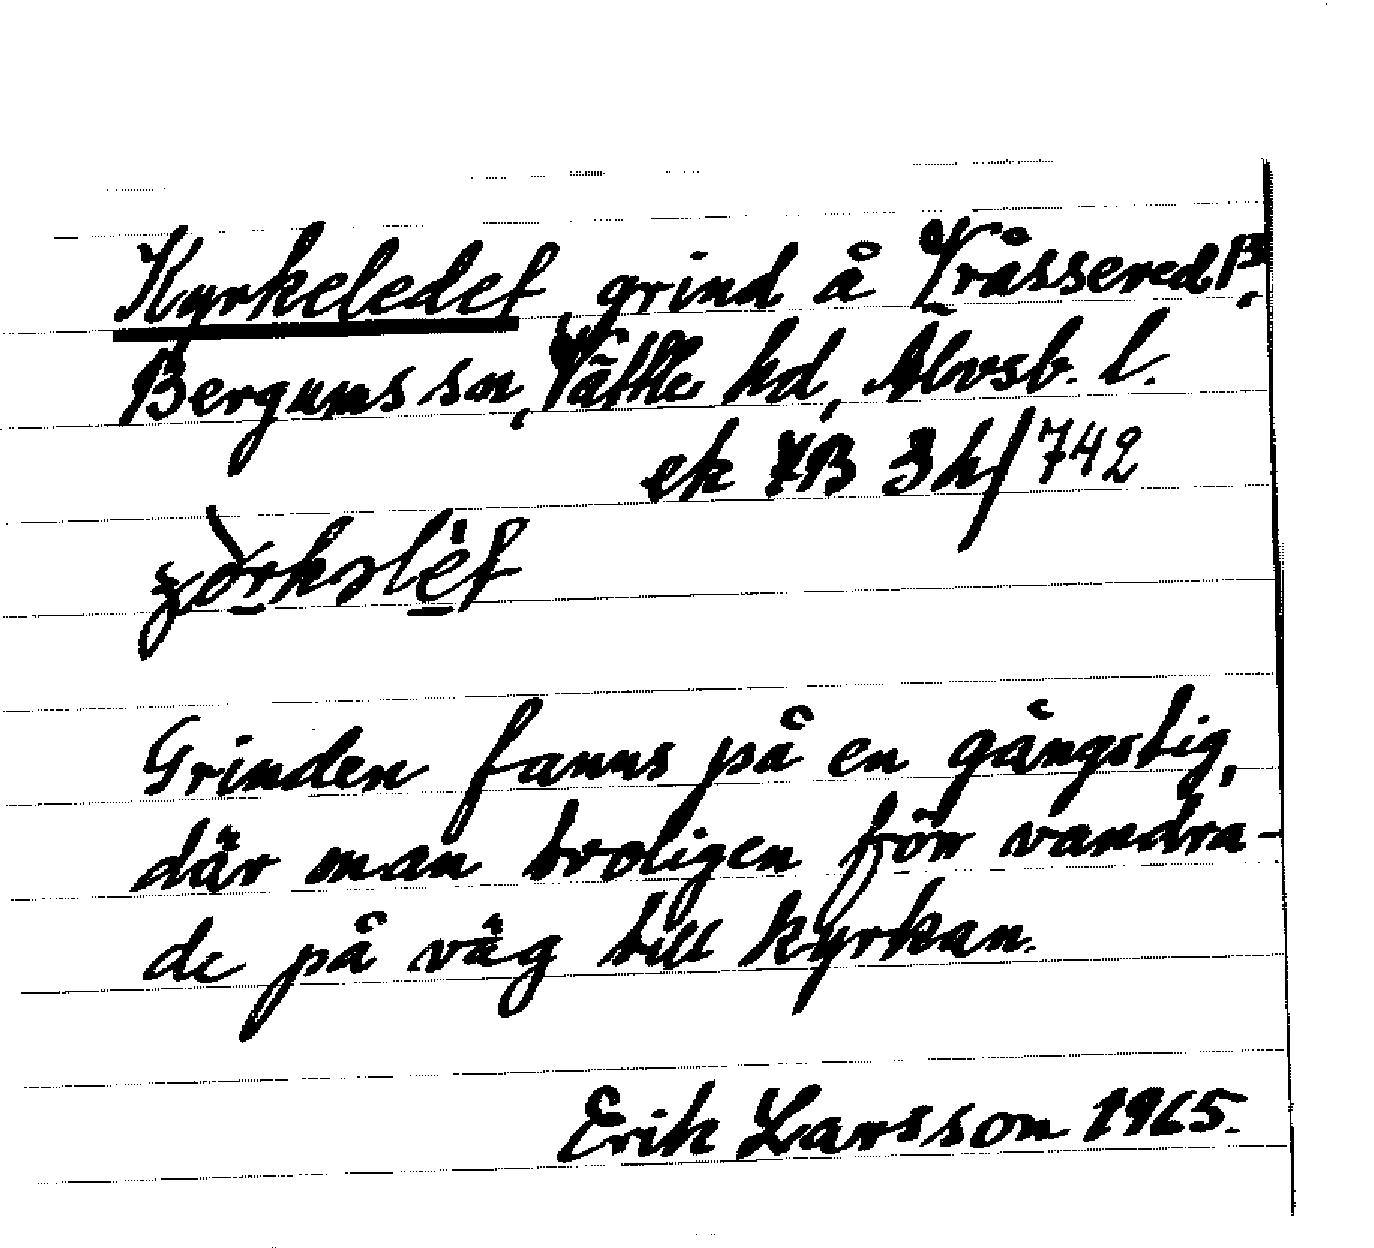 Kyrkeledet, grind å Tråssered 1:3,
Bergums sn, Vättle hd, Älvsb. l.
ek 7B 3h/742
Grinden fanns på en gångstig,
där man troligen förr vandra-
de på väg till kyrkan.
Erik Larsson 1965.